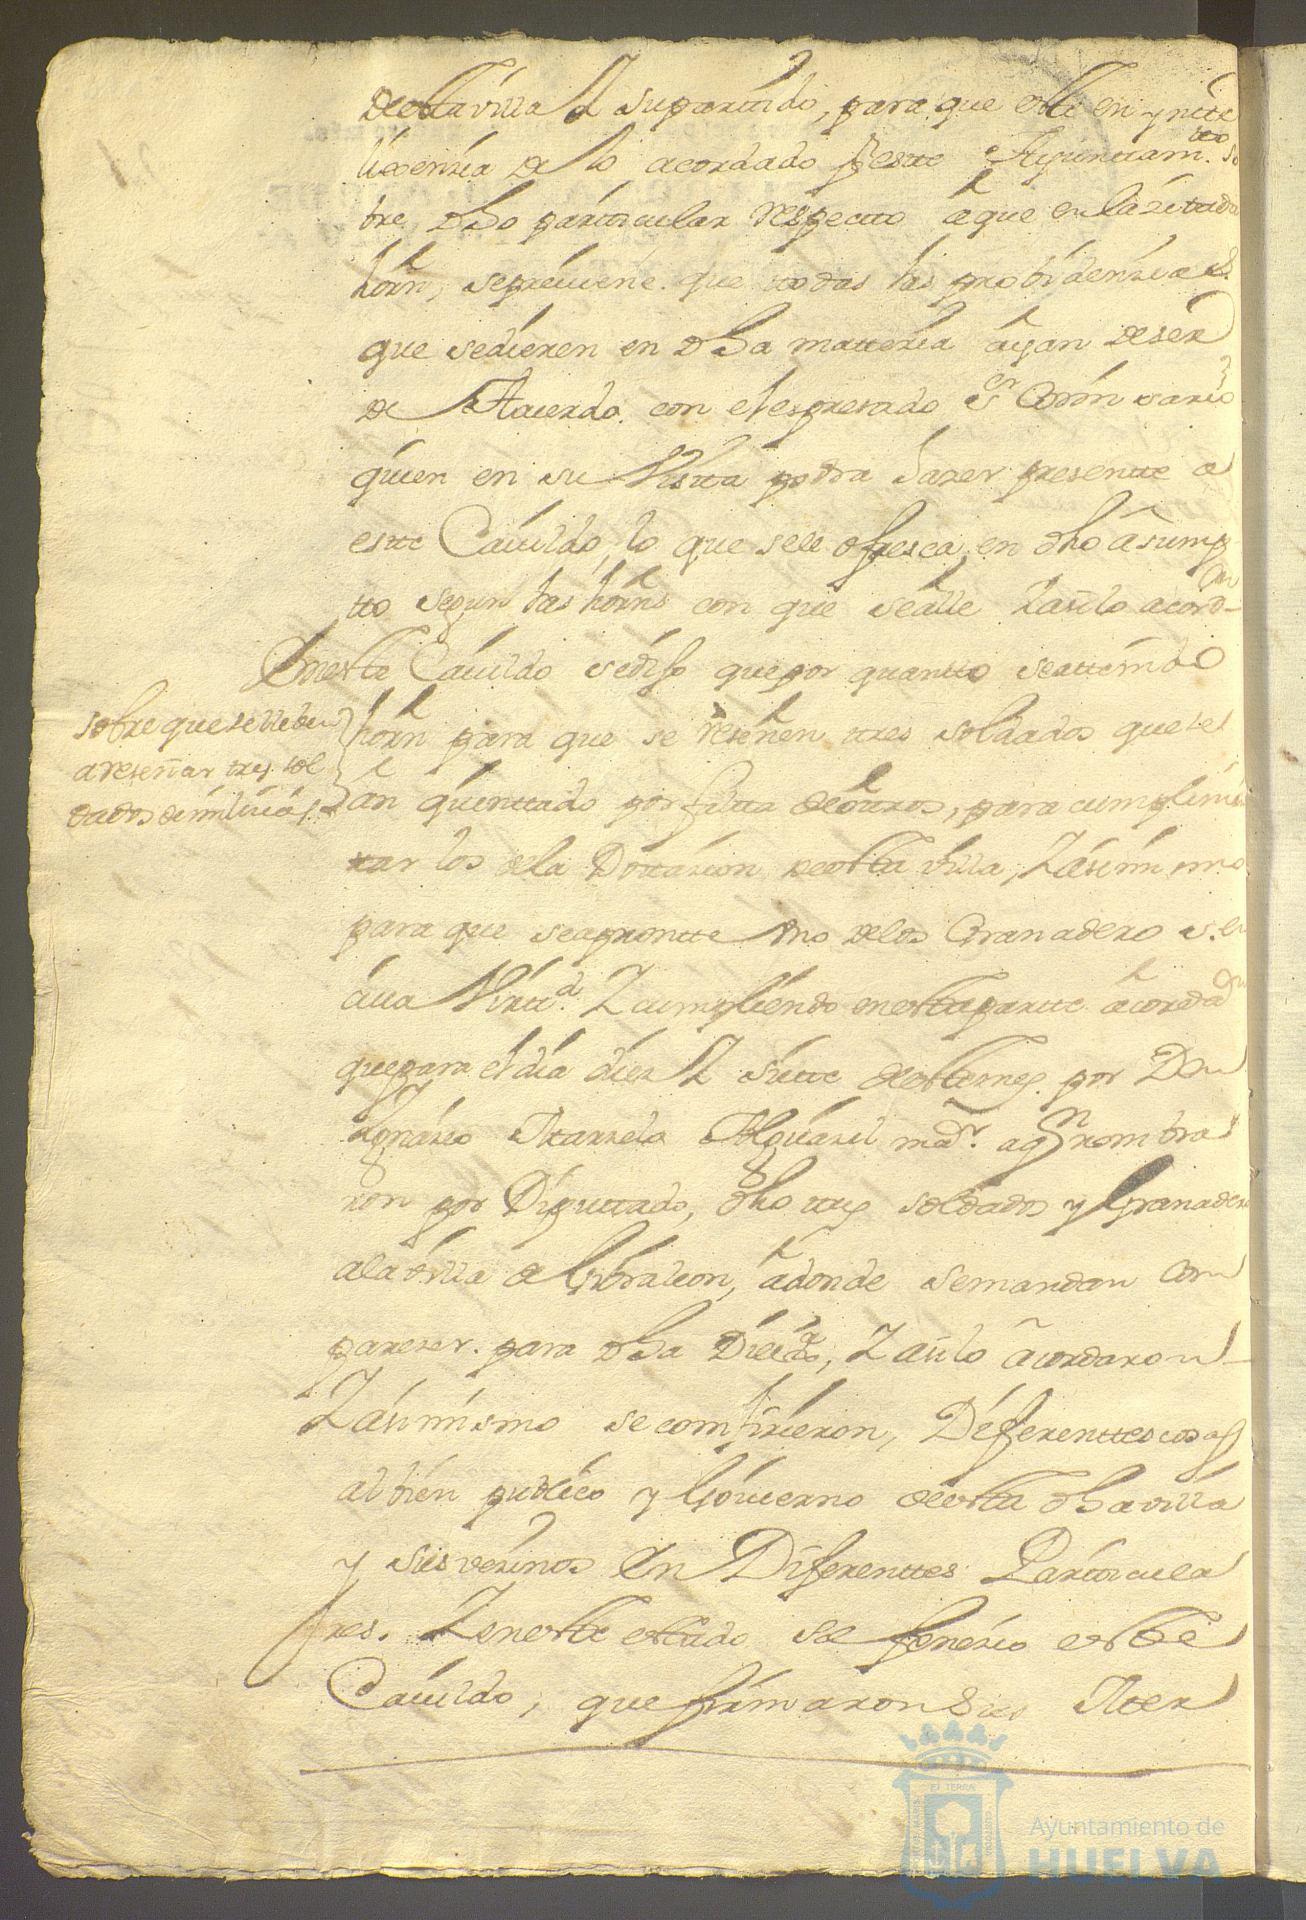 destta villa Y su partido, para que estte en ynttelixenzia de lo acordado por estte Ayunttam.to so
bre dho particular respecto â que en la zitada
horn, se preuiene que todas las probidenzias
que se dieren en dha matteria âyan de ser
de Acuerdo con el espresado s.or Comisario
quien en su Visita podra hazer presentte a
estte Cauildo, lo que se le ofresca en dho âsump
tto segun las horns con que se alle Y asi lo acord.on
En estte Cauildo se dijo que por quantto se a ttenido
sobre que se lleben
a reseñar tres sol
dados de milicias
horn para que se reseñen tres soldados que se
ân quinttado por faltta de ôtros, para cumplimen
tar los de la Dottazion de estta villa, Y asimismo
para que se apronte uno de los Granaderos, en
cuia Virtt.d Y cumpliendo en estta partte âcorda.on
que para el dia diez Y siette de este mes por Don
Ygnazio Alguazil ma.or a q.n nombra
ron por Diputtado, dhos tres soldados y Granadero
a la villa de Gibraleon, âdonde se mandan Com
pareser para dho Dia, Y asi lo âcordaron
Y asimismo se comfirieron, Diferenttes cosas
al bien publico y Gouierno de estta dha villa
y sus vezinos En Diferenttes Particula
res. Y en estte esttado se fenezio estte
Cauildo, que firmaron Sus Merz
ET TERRAE
Ayuntamiento de
HUELVA